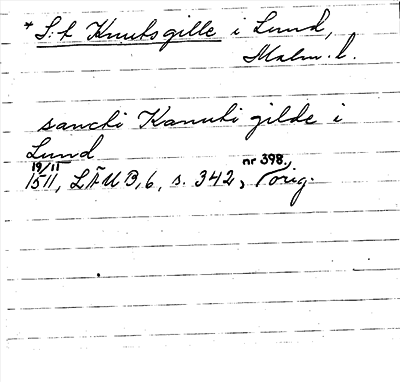 * S:t Knutsgille i Lund,
Malm. l.
sancti Kanuti gilde i
Lund
19/11
1511, LÄUB, 6, s. 342, nr 398, orig.